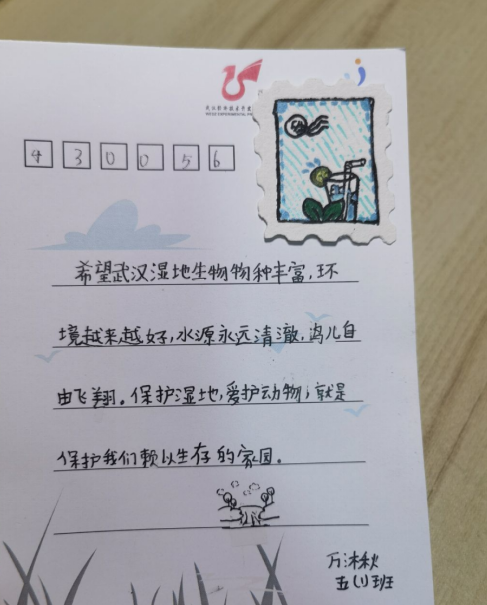 430056
希望武汉湿地生物物种丰富,环
境越来越好,水源永远清澈,鸟儿自
由飞翔。保护湿地,爱护动物,就是
保护我们赖以生存的家园。
五(1)班